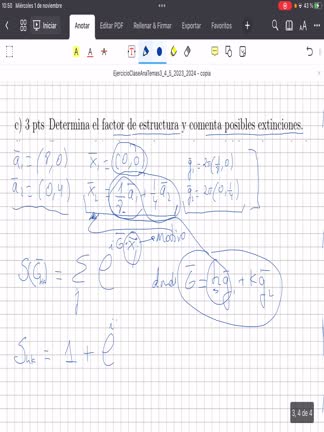 10:50 Miércoles 1 de noviembre
43 %
Iniciar
Anotar
Editar PDF
Rellenar & Firmar
Exportar
Favoritos
EjercicioClaseAnaTemas3_4_5_2023_2024 - copia
c) 3 pts Determina el factor de estructura y comenta posibles extinciones.
a̅₁ = (8,0) x̅₁ = (0,0) g̅₁ = 2π(1/8, 0)
a̅₂ = (0,4) x̅₂ = 1/2 a̅₁ + 1/4 a̅₂ g̅₂ = 2π(0, 1/4)
S(G̅hk) = Σj e^(i G̅ x̅j) → motivo donde G̅ = h g̅₁ + k g̅₂
Shk = 1 + e^i
3, 4 de 4